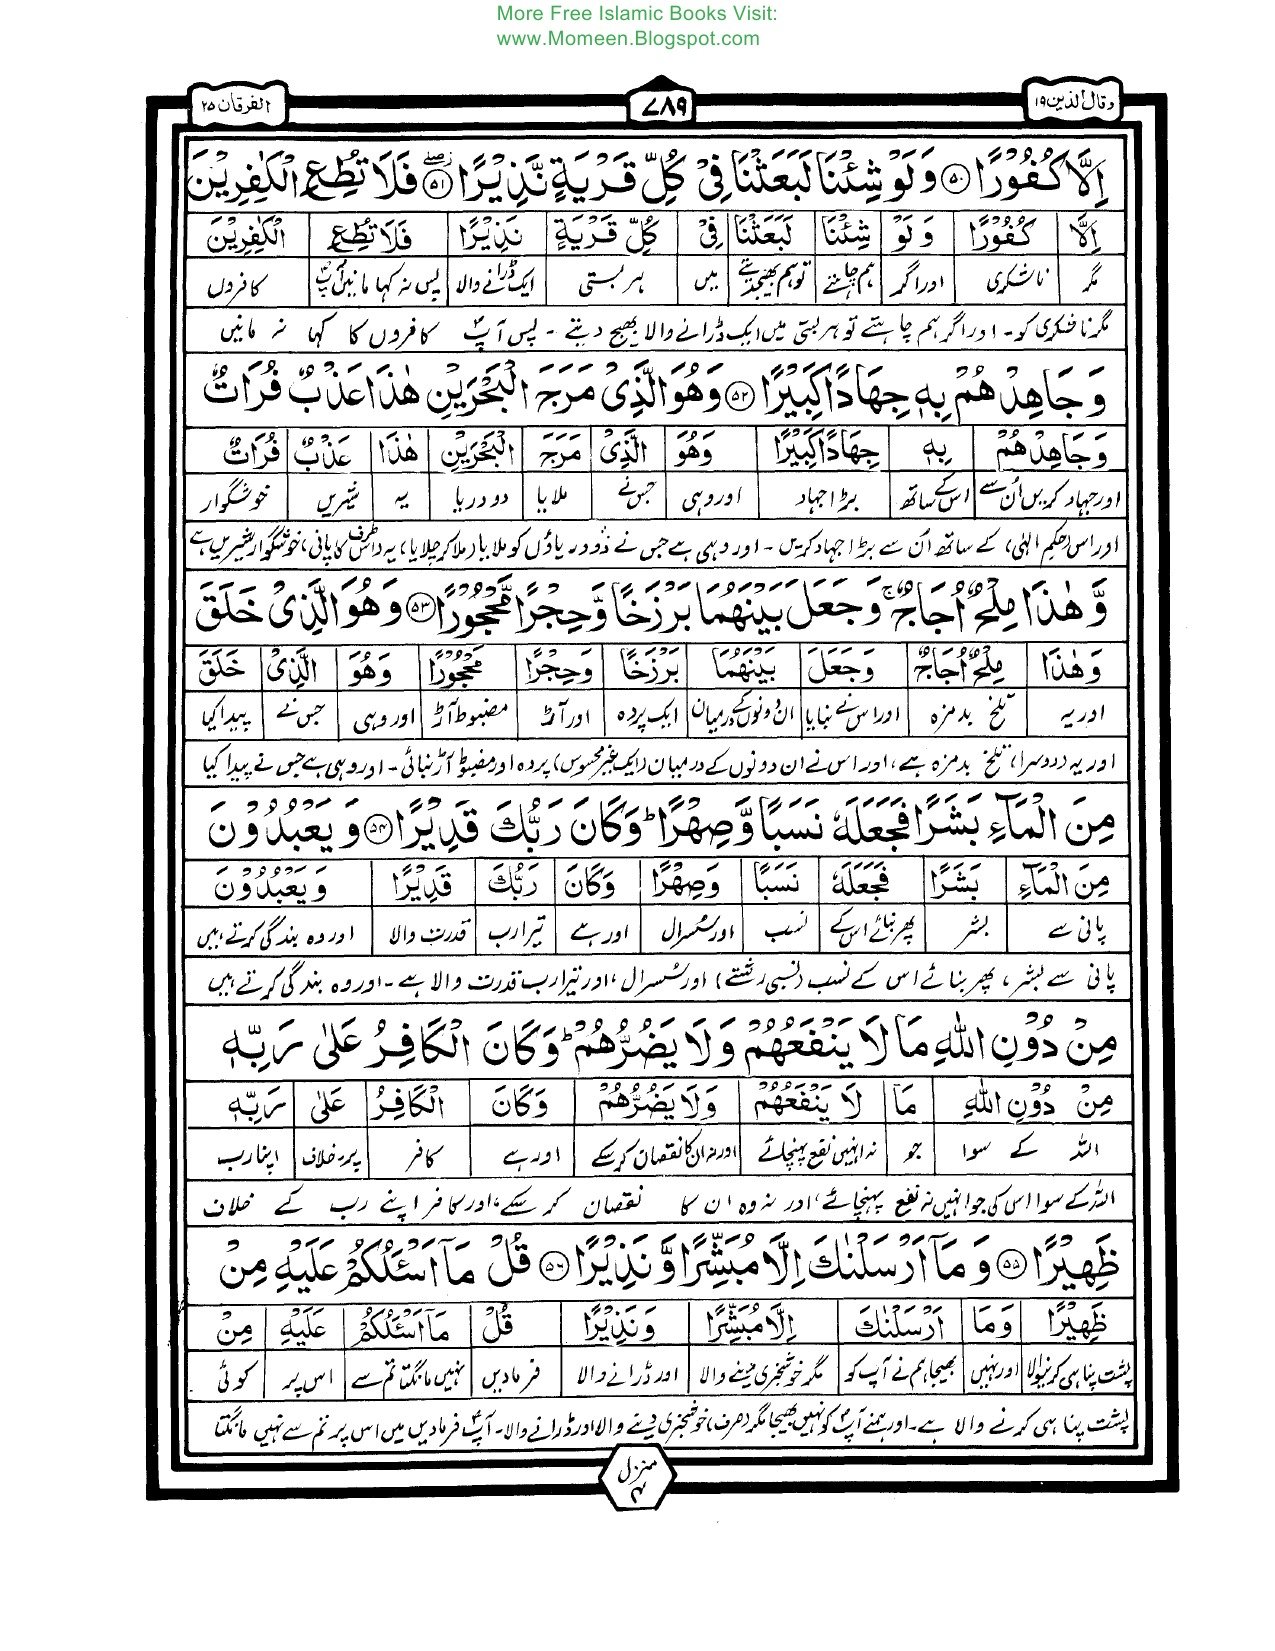 More Free Islamic Books Visit:
www.Momeen.Blogspot.com
وقال الذین ۱۹
۷۸۹
الفرقان ۲۵
اِلَّا كُفُوْرًا ۵۰ وَ لَوْ شِئْنَا لَبَعَثْنَا فِیْ كُلِّ قَرْیَةٍ نَّذِیْرًا ۵۱ فَلَا تُطِعِ الْكٰفِرِیْنَ
اِلَّا كُفُوْرًا وَ لَوْ شِئْنَا لَبَعَثْنَا فِیْ كُلِّ قَرْیَةٍ نَذِیْرًا فَلَا تُطِعِ الْكٰفِرِیْنَ
مگر ناشکری اور اگر ہم چاہتے تو ہم بھیجدیتے میں ہر بستی ایک ڈرانے والا پس نہ کہا مانیں آپؐ کافروں
مگر ناشکری کو۔ اور اگر ہم چاہتے تو ہر بستی میں ایک ڈرانے والا بھیج دیتے ۔ پس آپؐ کافروں کا کہا نہ مانیں
وَ جَاهِدْهُمْ بِهٖ جِهَادًا كَبِیْرًا ۵۲ وَهُوَ الَّذِیْ مَرَجَ الْبَحْرَیْنِ هٰذَا عَذْبٌ فُرَاتٌ
وَجَاهِدْهُمْ بِهٖ جِهَادًا كَبِیْرًا وَهُوَ الَّذِیْ مَرَجَ الْبَحْرَیْنِ هٰذَا عَذْبٌ فُرَاتٌ
اور جہاد کریں اُن سے اس کے ساتھ بڑا جہاد اور وہی جس نے ملایا دو دریا یہ شیریں خوشگوار
اور اس (حکمِ الٰہی) کے ساتھ اُن سے بڑا جہاد کریں ۔ اور وہی ہے جس نے دو دریاؤں کو ملایا (ملا کر چلایا) یہ (اِس طرف کا پانی) خوشگوار شیریں ہے
وَّ هٰذَا مِلْحٌ اُجَاجٌ ۚ وَجَعَلَ بَیْنَهُمَا بَرْزَخًا وَّحِجْرًا مَّحْجُوْرًا ۵۳ وَهُوَ الَّذِیْ خَلَقَ
وَهٰذَا مِلْحٌ اُجَاجٌ وَجَعَلَ بَیْنَهُمَا بَرْزَخًا وَحِجْرًا مَحْجُوْرًا وَهُوَ الَّذِیْ خَلَقَ
اور یہ تلخ بدمزہ اور اس نے بنایا ان دونوں کے درمیان ایک پردہ اور آڑ مضبوط آڑ اور وہی جس نے پیدا کیا
اور یہ (دوسرا) تلخ بدمزہ ہے، اور اس نے ان دونوں کے درمیان (ایک غیر محسوس) پردہ اور مضبوط آڑ بنائی ۔ اور وہی ہے جس نے پیدا کیا
مِنَ الْمَآءِ بَشَرًا فَجَعَلَهٗ نَسَبًا وَّصِهْرًا ؕ وَكَانَ رَبُّكَ قَدِیْرًا ۵۴ وَ یَعْبُدُوْنَ
مِنَ الْمَآءِ بَشَرًا فَجَعَلَهٗ نَسَبًا وَصِهْرًا وَكَانَ رَبُّكَ قَدِیْرًا وَ یَعْبُدُوْنَ
پانی سے بشر پھر بنائے اس کے نسب اور سُسرال اور ہے تیرا رب قدرت والا اور وہ بندگی کرتے ہیں
پانی سے بشر، پھر بنائے اس کے نسب (نسبی رشتے) اور سُسرال، اور تیرا رب قدرت والا ہے ۔ اور وہ بندگی کرتے ہیں
مِنْ دُوْنِ اللّٰهِ مَا لَا یَنْفَعُهُمْ وَلَا یَضُرُّهُمْ ؕ وَكَانَ الْكَافِرُ عَلٰی رَبِّهٖ
مِنْ دُوْنِ اللّٰهِ مَا لَا یَنْفَعُهُمْ وَلَا یَضُرُّهُمْ وَكَانَ الْكَافِرُ عَلٰی رَبِّهٖ
اللہ کے سوا جو نہ انہیں نفع پہنچائے اور نہ ان کا نقصان کرسکے اور ہے کافر پر۔ خلاف اپنا رب
اللہ کے سوا اس کی جو انہیں نہ نفع پہنچائے، اور نہ وہ ان کا نقصان کر سکے، اور کافر اپنے رب کے خلاف
ظَهِیْرًا ۵۵ وَ مَاۤ اَرْسَلْنٰكَ اِلَّا مُبَشِّرًا وَّ نَذِیْرًا ۵۶ قُلْ مَاۤ اَسْئَلُكُمْ عَلَیْهِ مِنْ
ظَهِیْرًا وَمَا اَرْسَلْنٰكَ اِلَّا مُبَشِّرًا وَ نَذِیْرًا قُلْ مَاۤ اَسْئَلُكُمْ عَلَیْهِ مِنْ
پشت پناہی کرنیوالا اور نہیں بھیجا ہم نے آپ کو مگر خوشخبری دینے والا اور ڈرانے والا فرمادیں نہیں مانگتا تم سے اس پر کوئی
پشت پناہی کرنے والا ہے۔ اور ہم نے آپؐ کو نہیں بھیجا مگر (صرف) خوشخبری دینے والا اور ڈرانے والا ۔ آپؐ فرمادیں میں اس پر تم سے نہیں مانگتا
منزل ۴